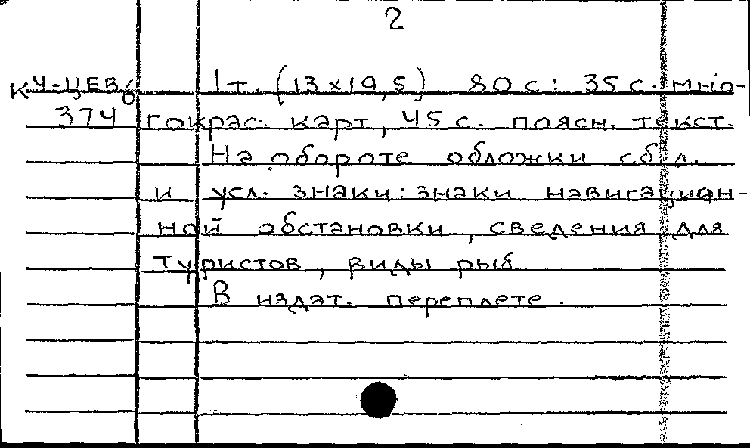 2
К У-ЦЕВ 6 1 т. (13 x 19,5) 80 с: 35 с. мно-
374 гокрас. карт, 45 с. поясн. текст.
На обороте обложки сб. л.
и усл. знаки: знаки навигацион-
ной обстановки, сведения для
туристов, виды рыб
В издат. переплете.